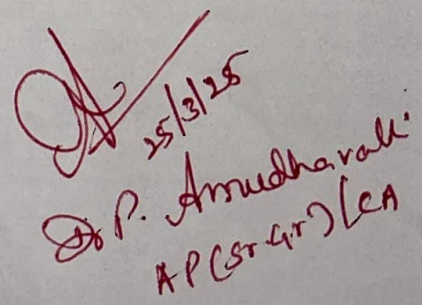 25/3/25
Dr P. Amudhavalli
AP(Sr.Gr)/CA